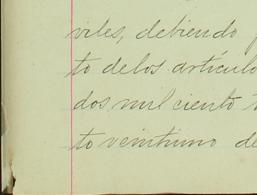 viles, debiendo
to delos artículo
dos mil ciento
to veintiuno de